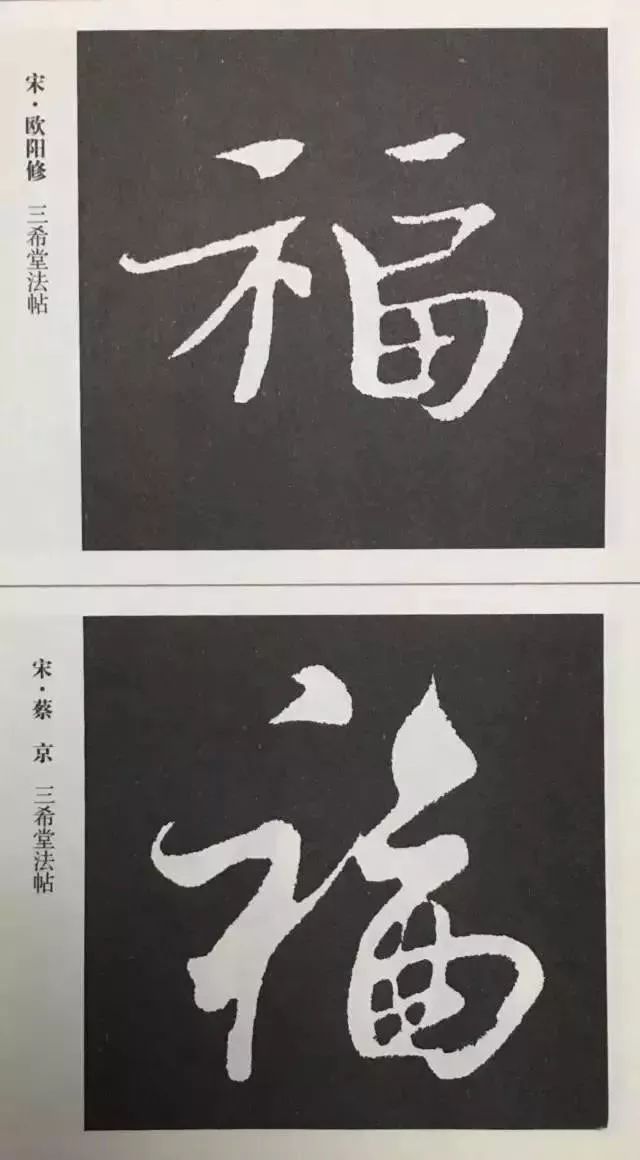 宋·欧阳修 三希堂法帖
福
宋·蔡京 三希堂法帖
福